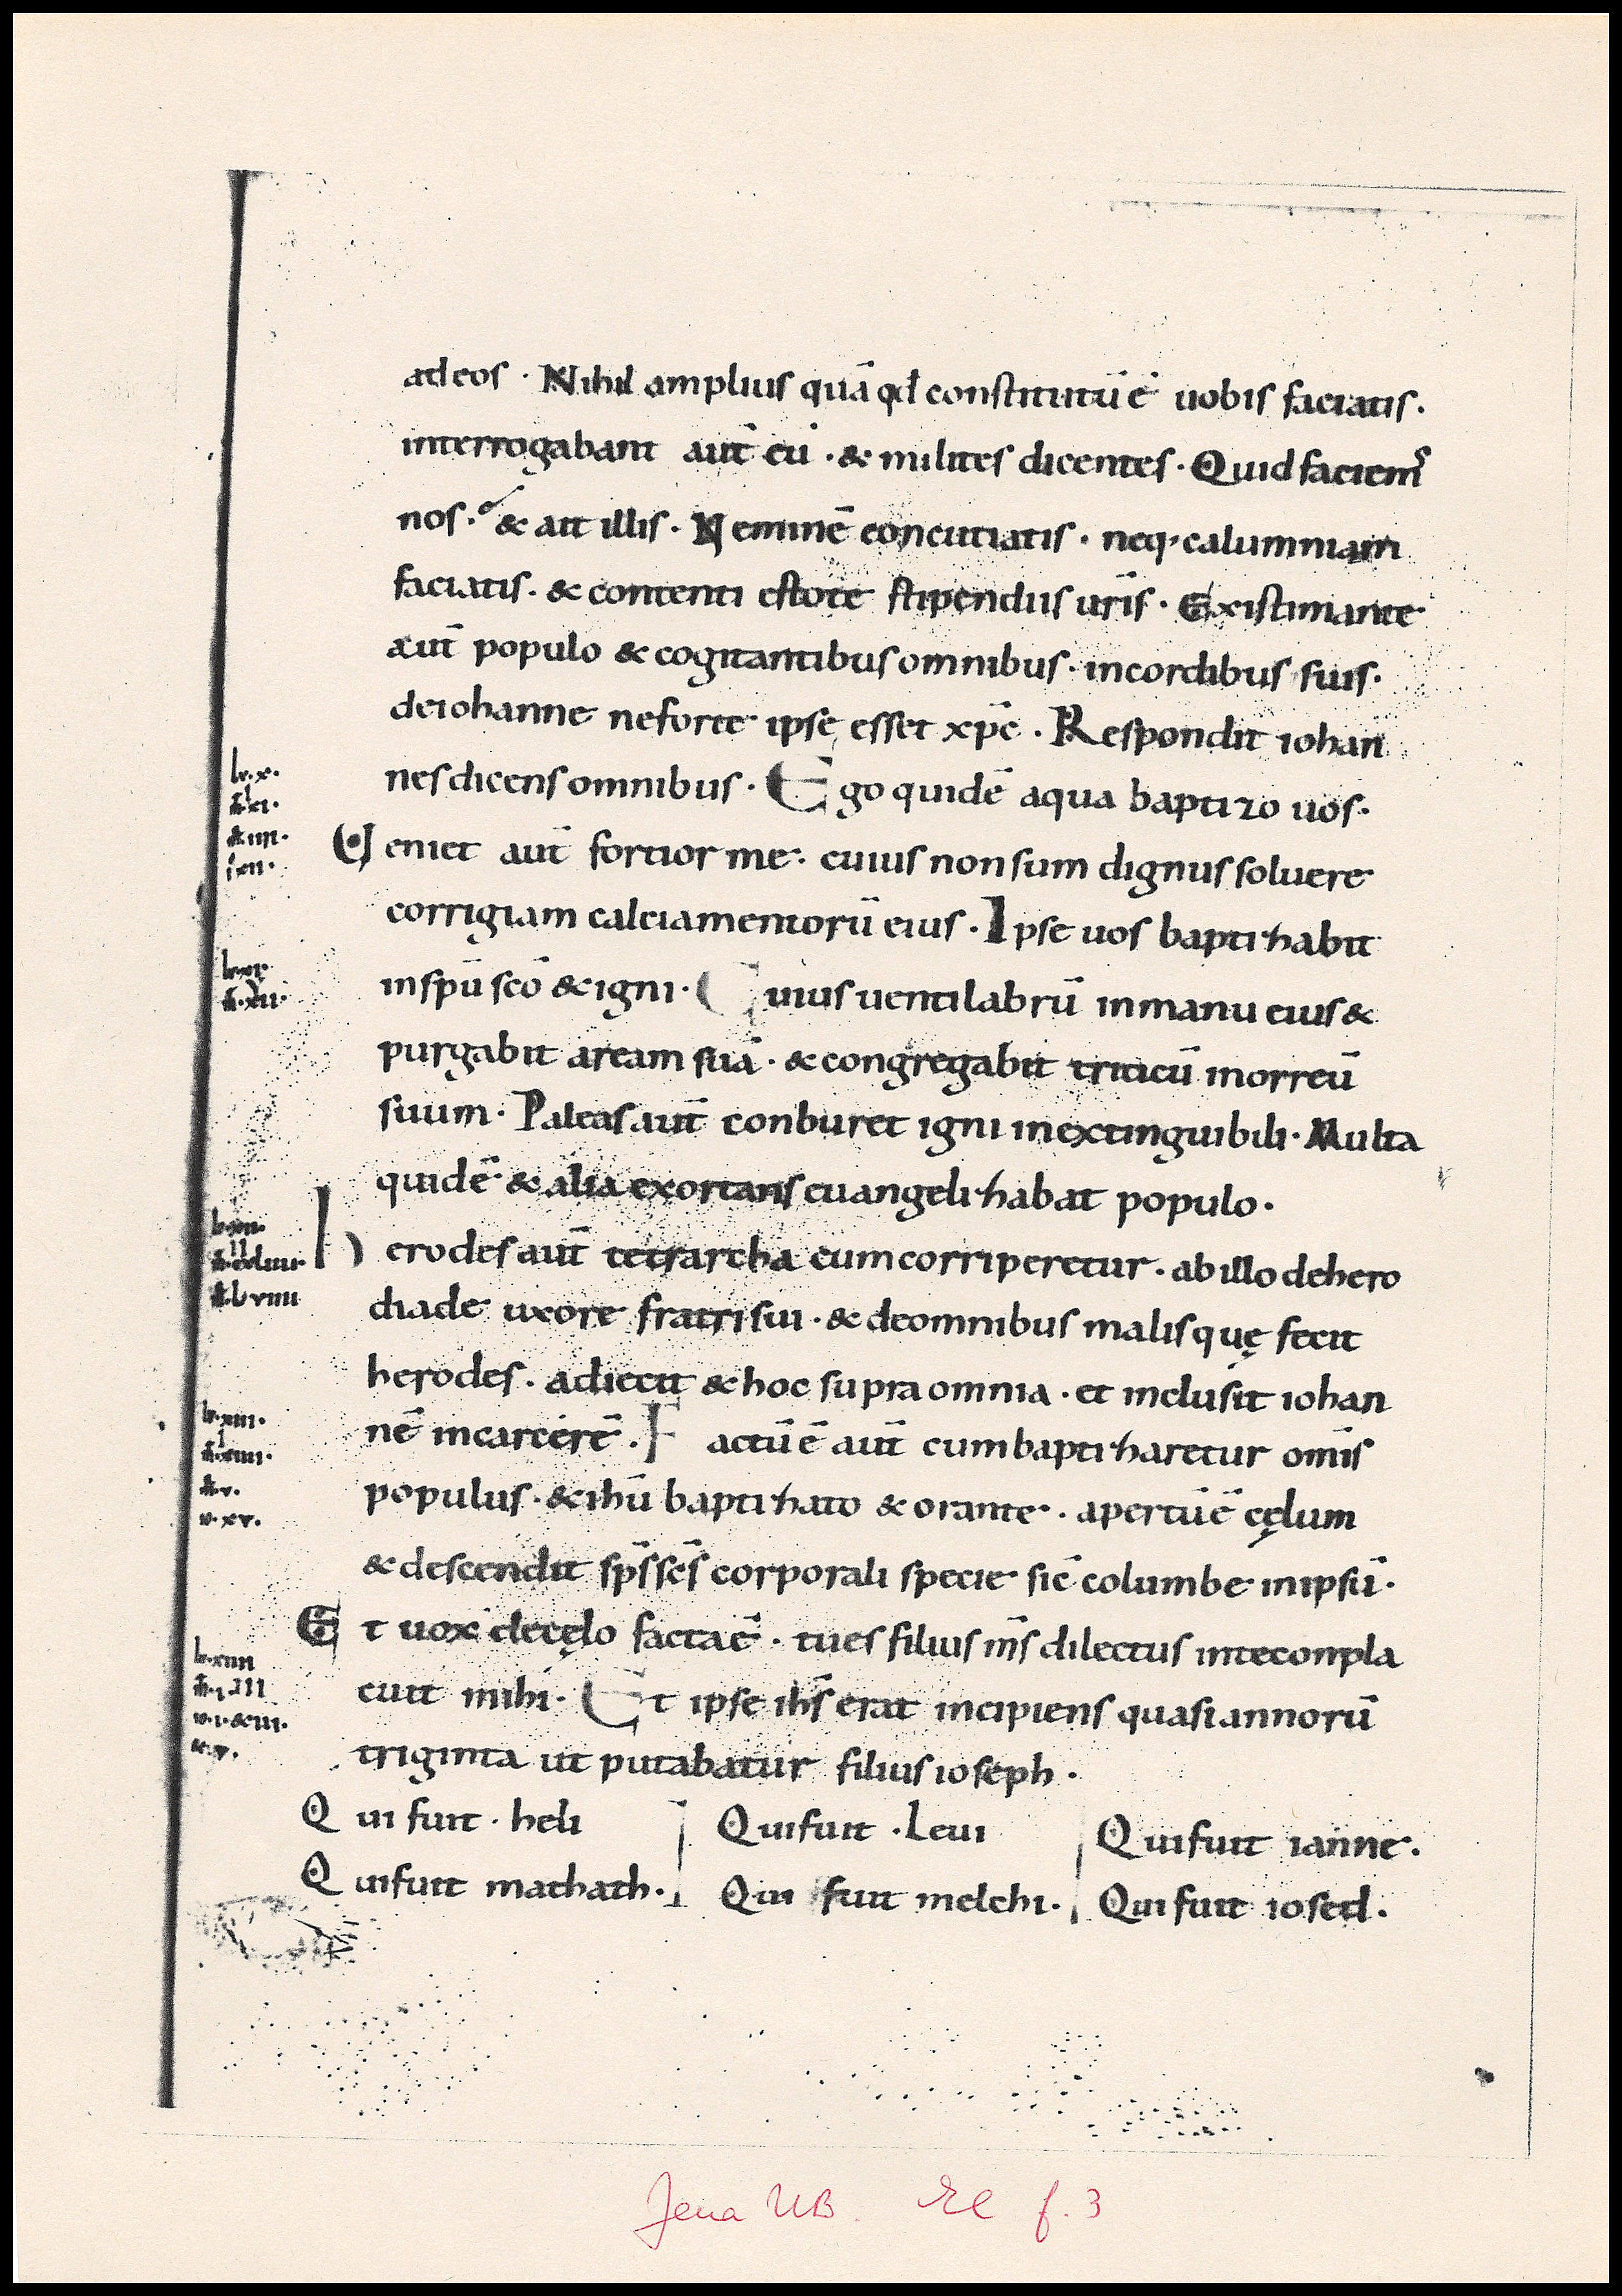 adeos · Nihil amplius quā qđ constitutū ē uobis faciatis.
interrogabant aut̄ eū · & milites dicentes · Quid faciemꝰ
nos · & ait illis · Neminē concutiatis · neq; calumniam
faciatis · & contenti estote stipendiis ur̄is · Existimante
aut̄ populo & cogitantibus omnibus · incordibus suis ·
deiohanne neforte ipse esset xp̄c · Respondit iohan
nes dicens omnibus · Ego quidē aqua baptizo uos ·
Ueniet aut̄ fortior me · cuius non sum dignus soluere
corrigiam calciamentorū eius · Ipse uos baptizabit
inspū scō & igni · Cuius uentilabrū inmanu eius &
purgabit aream suā · & congregabit triticū inorreū
suum · Paleas aut̄ conburet igni inextinguibili · Multa
quidē & alia exortans euangelizabat populo ·
herodes aut̄ tetrarcha cum corriperetur · ab illo dehero
diade uxore fratri sui · & deomnibus malis quę fecit
herodes · adiecit & hoc supra omnia · et inclusit iohan
nē incarcerē · Factū ē aut̄ cum baptizaretur om̄is
populus · & ihū baptizato & orante · apertū ē cęlum
& descendit sp̄s sc̄s corporali specie sic̄ columbe inipsū ·
Et uox decęlo facta ē · tu es filius m̄s dilectus inte conpla
cuit mihi · Et ipse ihs̄ erat incipiens quasi annorū
triginta ut putabatur filius ioseph ·
Qui fuit · heli
Qui fuit mathath ·
Qui fuit · Leui
Qui fuit melchi ·
Qui fuit ianne ·
Qui fuit iosed ·
lr · x ·
lr · xiii ·
lr · xiiii
Jena UB. El f. 3